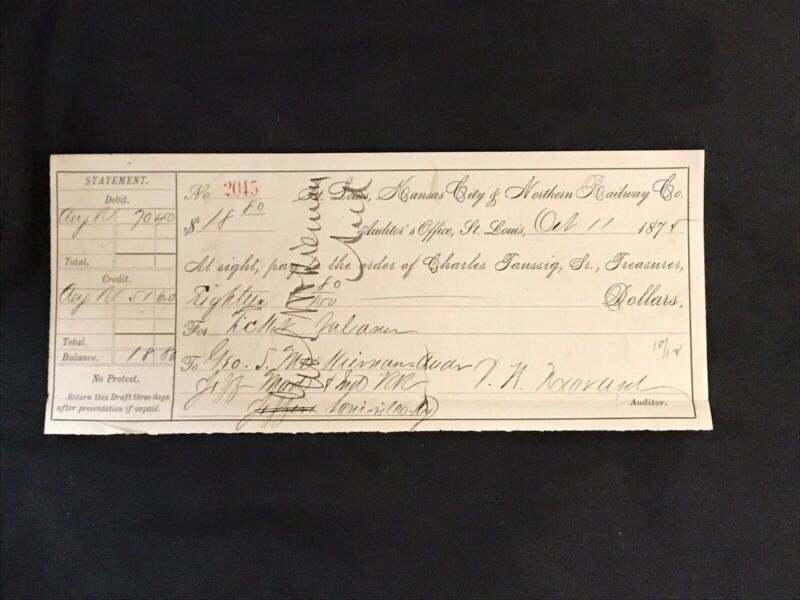 STATEMENT.
Debit.
Aug 70 40
Total,
Credit.
Aug 51 60
Total,
Balance, 18 80
No Protest.
Return this Draft three days
after presentation if unpaid.
No. 2045 St. Louis, Kansas City & Northern Railway Co.
$ 18 80 Auditor's Office, St. Louis, Oct 11 1875
At sight, pay to the order of Charles Taussig, Sr., Treasurer,
Eighteen 80/100 Dollars,
For Ticket Balance
To Geo. S. McKiernan Audr
Jeff Mad & Ind RR
Louisville Ky
Auditor.